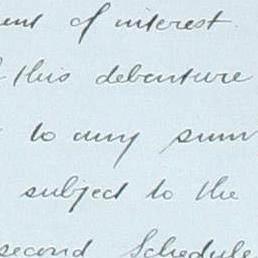 of interest.
this debenture
to any sum
subject to the
second Schedule